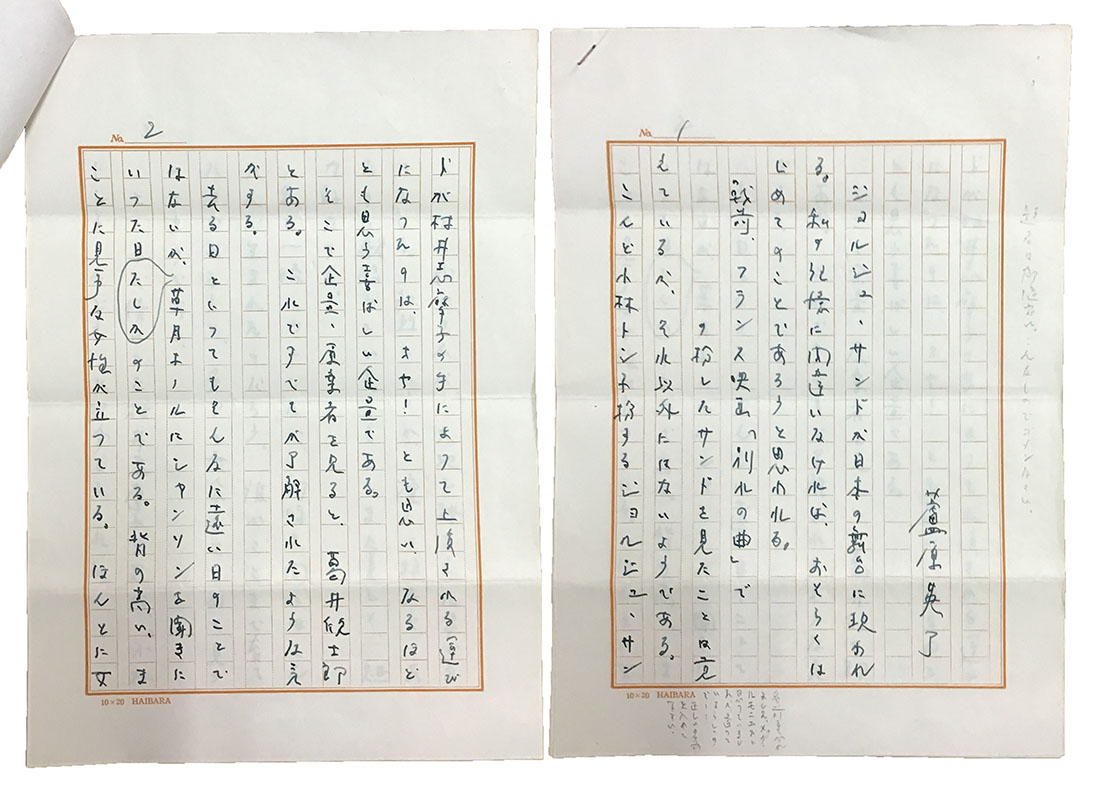 No. 1
蘆原英了
ジョルジュ・サンドが日本の舞台に現われ
る。私の記憶に間違いなければ、おそらくは
じめてのことであろうと思われる。
戦前、フランス映画「別れの曲」で
の扮したサンドを見たことは覚
えているが、それ以外にはないようである。
こんど小林トシ子扮するジョルジュ・サン
10×20 HAIBARA
No. 2
ドが村井志摩子の手によって上演される運び
になったのは、オヤ!とも思い、なるほど
とも思う喜ばしい企画である。
そこで企画・原案者を見ると、葛井欣士郎
とある。これですべてが了解されたような気
がする。
去る日といってもそんなに遠い日のことで
はないが、草月ホールにシャンソンを聞きに
いった日たしかのことである。背の高い、ま
ことに見事な女性が立っている。ほんとに女
10×20 HAIBARA